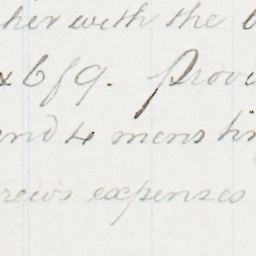 her with the
& 6 f 9. Provi
and 4 mens tim
rews expenses